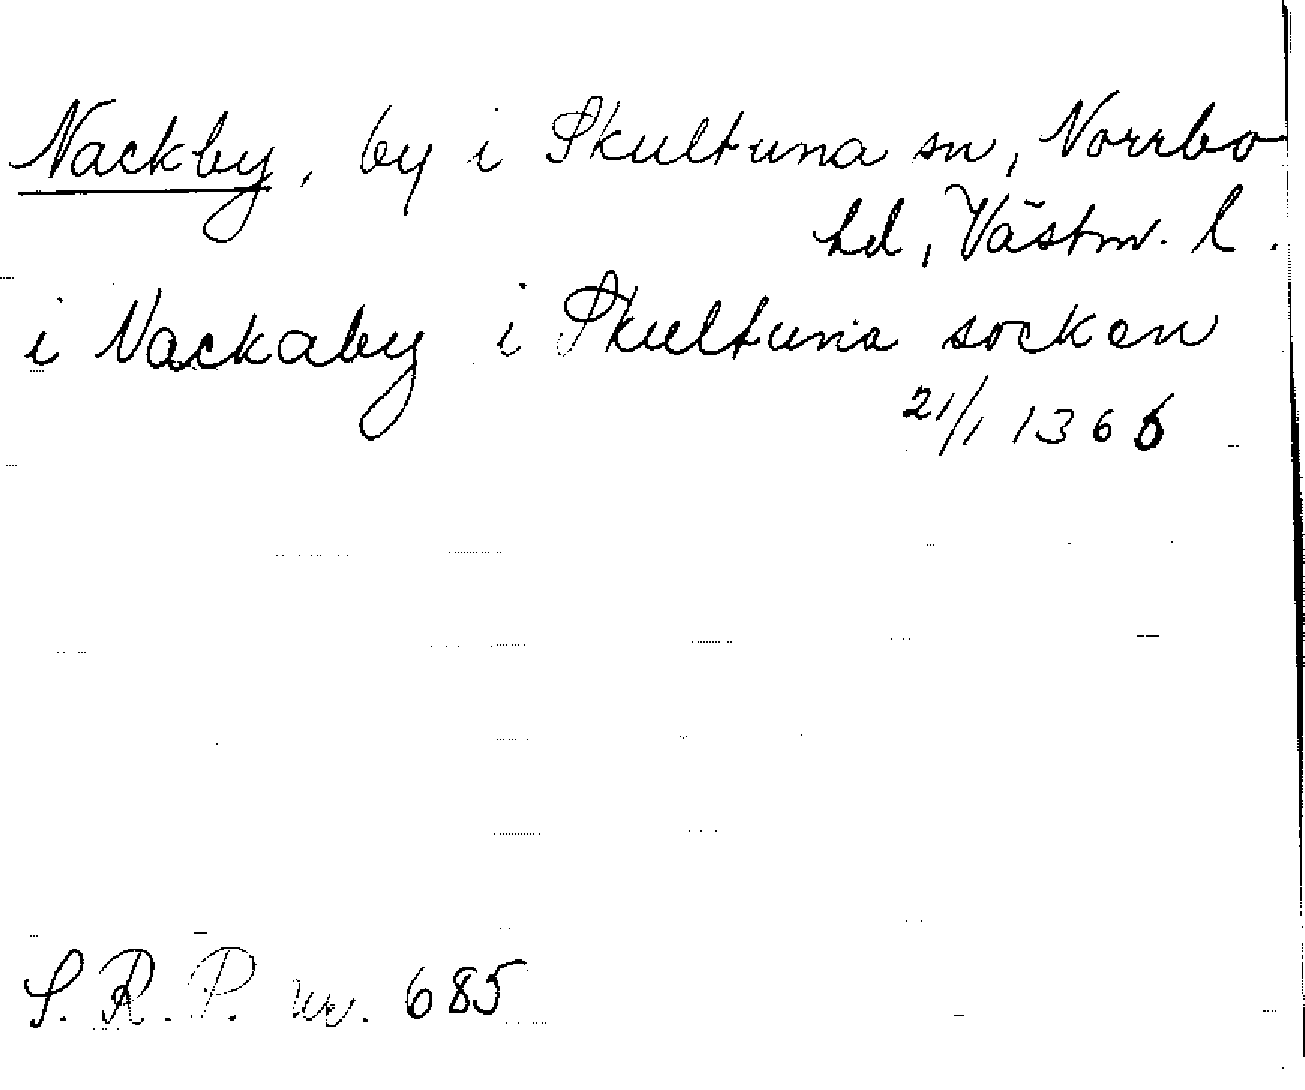 Nackby, by i Skultuna sn, Norrbo
hd, Västm. l.
i Nackaby i Skultuna socken
21/1 1366
S. R. P. nr. 685